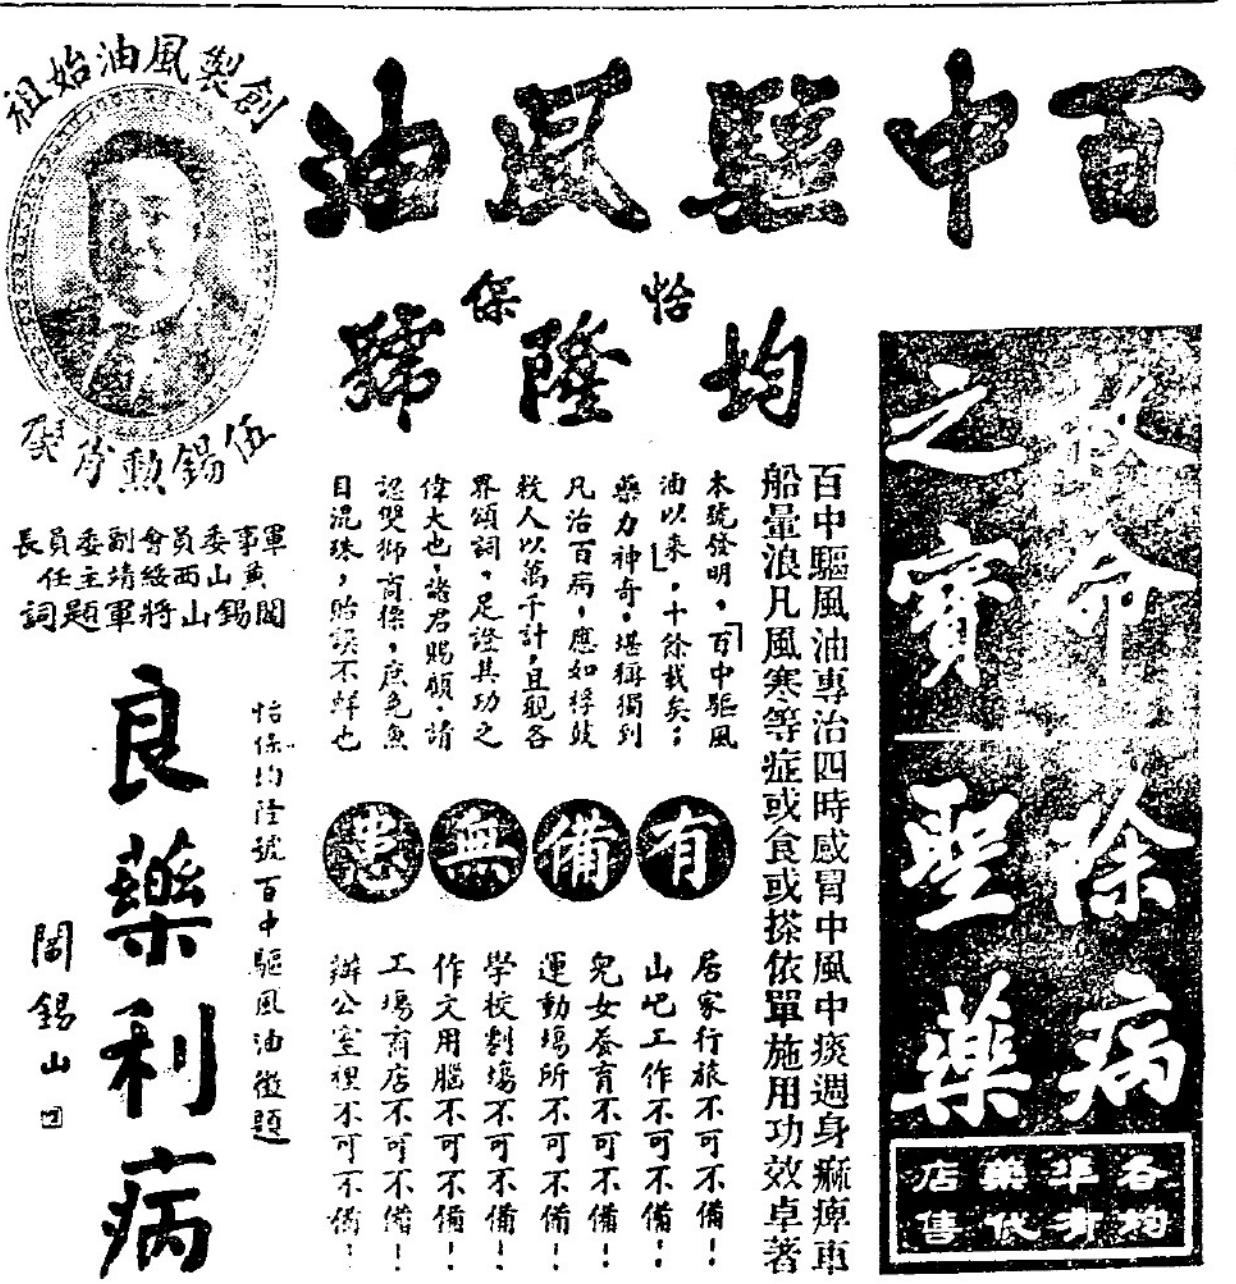 百中驅風油
怡保
均隆號
救命之寶
除病聖藥
各埠藥店
均有代售
百中驅風油專治四時感冒中風中痰週身痲痺車
船暈浪凡風寒等症或食或搽依單施用功效卓著
本號發明，「百中驅風
油以來」，十餘載矣；
藥力神奇，堪稱獨到
凡治百病，應如桴鼓
救人以萬千計，且觀各
界頌詞，足證其功之
偉大也，諸君賜顧，請
認雙獅商標，庶免魚
目混珠，貽誤不鮮也
有備無患
居家行旅不可不備！
山芭工作不可不備！
兒女養育不可不備！
運動塲所不可不備！
學校劇塲不可不備！
作文用腦不可不備！
工塲商店不可不備！
辦公室裡不可不備！
創製風油始祖
伍錫勳肖
軍事委員會副委員長
黃山西綏靖主任
閻錫山將軍題詞
怡保均隆號百中驅風油徵題
良藥利病
閻錫山